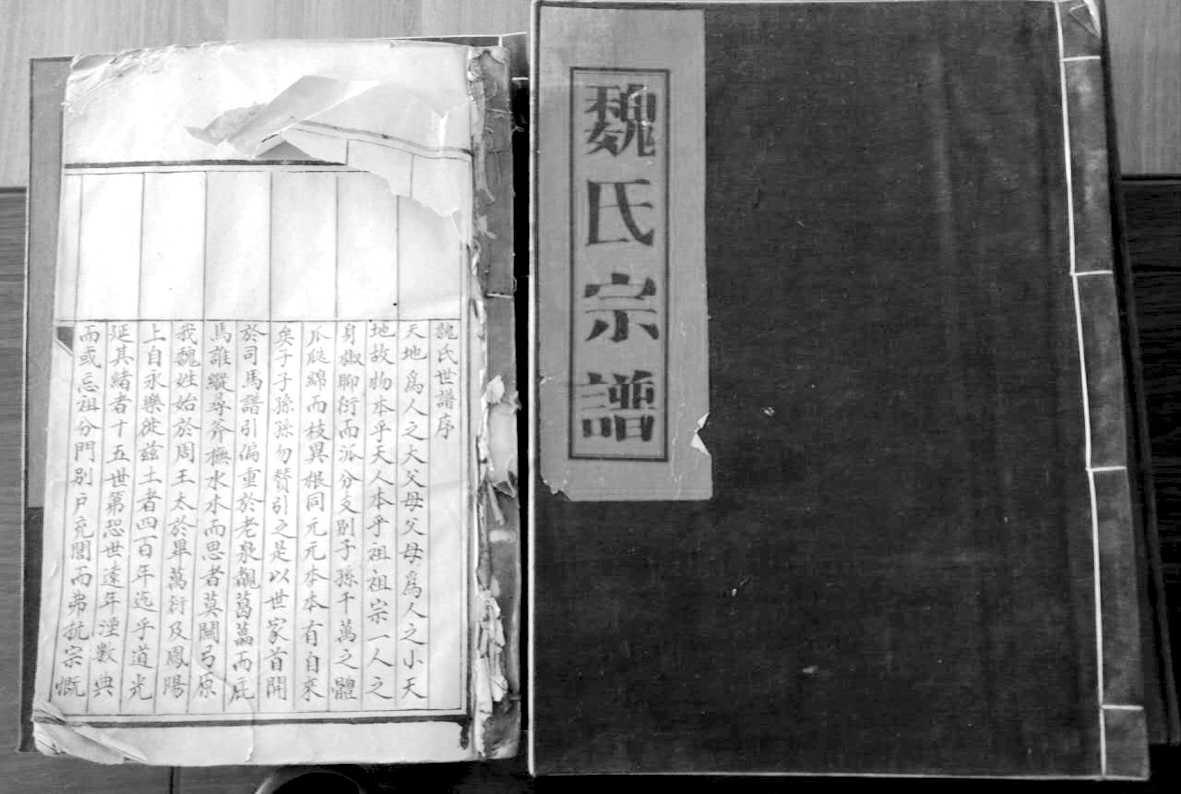 魏氏宗譜
魏氏世譜序
天地為人之大父母父母為人之小天
地故物本乎天人本乎祖祖宗一人之
身椒聊衍而派分支別子孫千萬之體
瓜瓞綿而枝異根同元元本本有自來
矣子子孫孫勿替引之是以世家首開
於司馬譜引偏重於老泉覩葛藟而庇
馬誰縱尋斧撫水木而思者莫關弓原
我魏姓始於周王太於畢萬衍及鳳陽
上自永樂徙茲土者四百年迄乎道光
延其緒者十五世第恐世遠年湮數典
而或忘祖分門別户充閭而弗抗宗慨